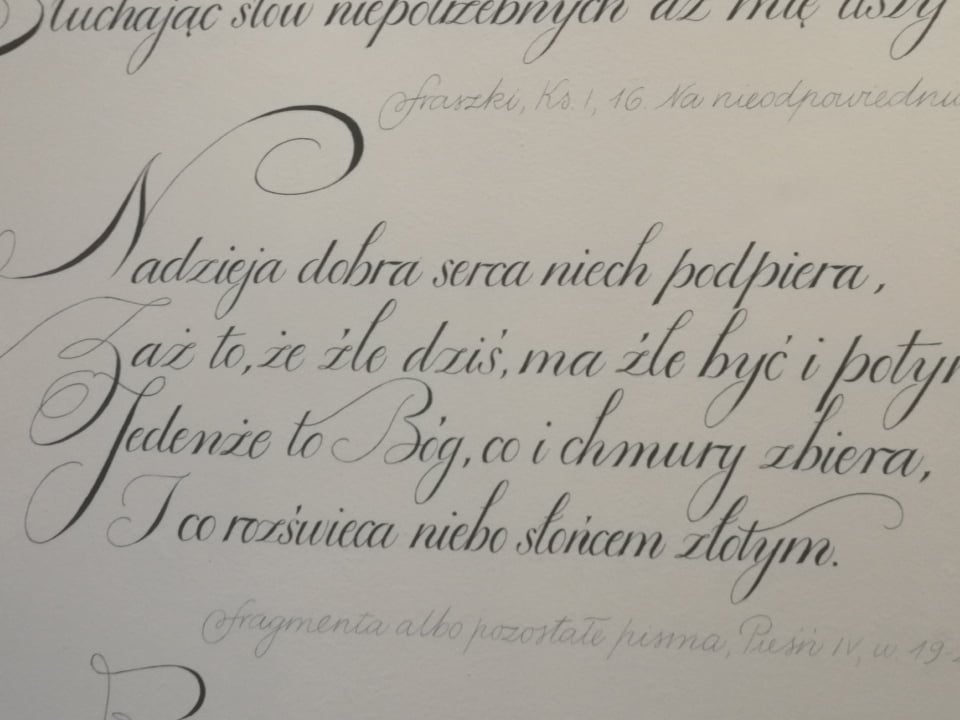 Słuchając słów niepotrzebnych aż mię uszy
Fraszki, Ks. I, 16. Na nieodpowiedni
Nadzieja dobra serca niech podpiera,
Zaż to, że źle dziś, ma źle być i potym
Jedenże to Bóg, co i chmury zbiera,
I co rozświeca niebo słońcem złotym.
fragmenta albo pozostałe pisma, Pieśń IV, w. 19-